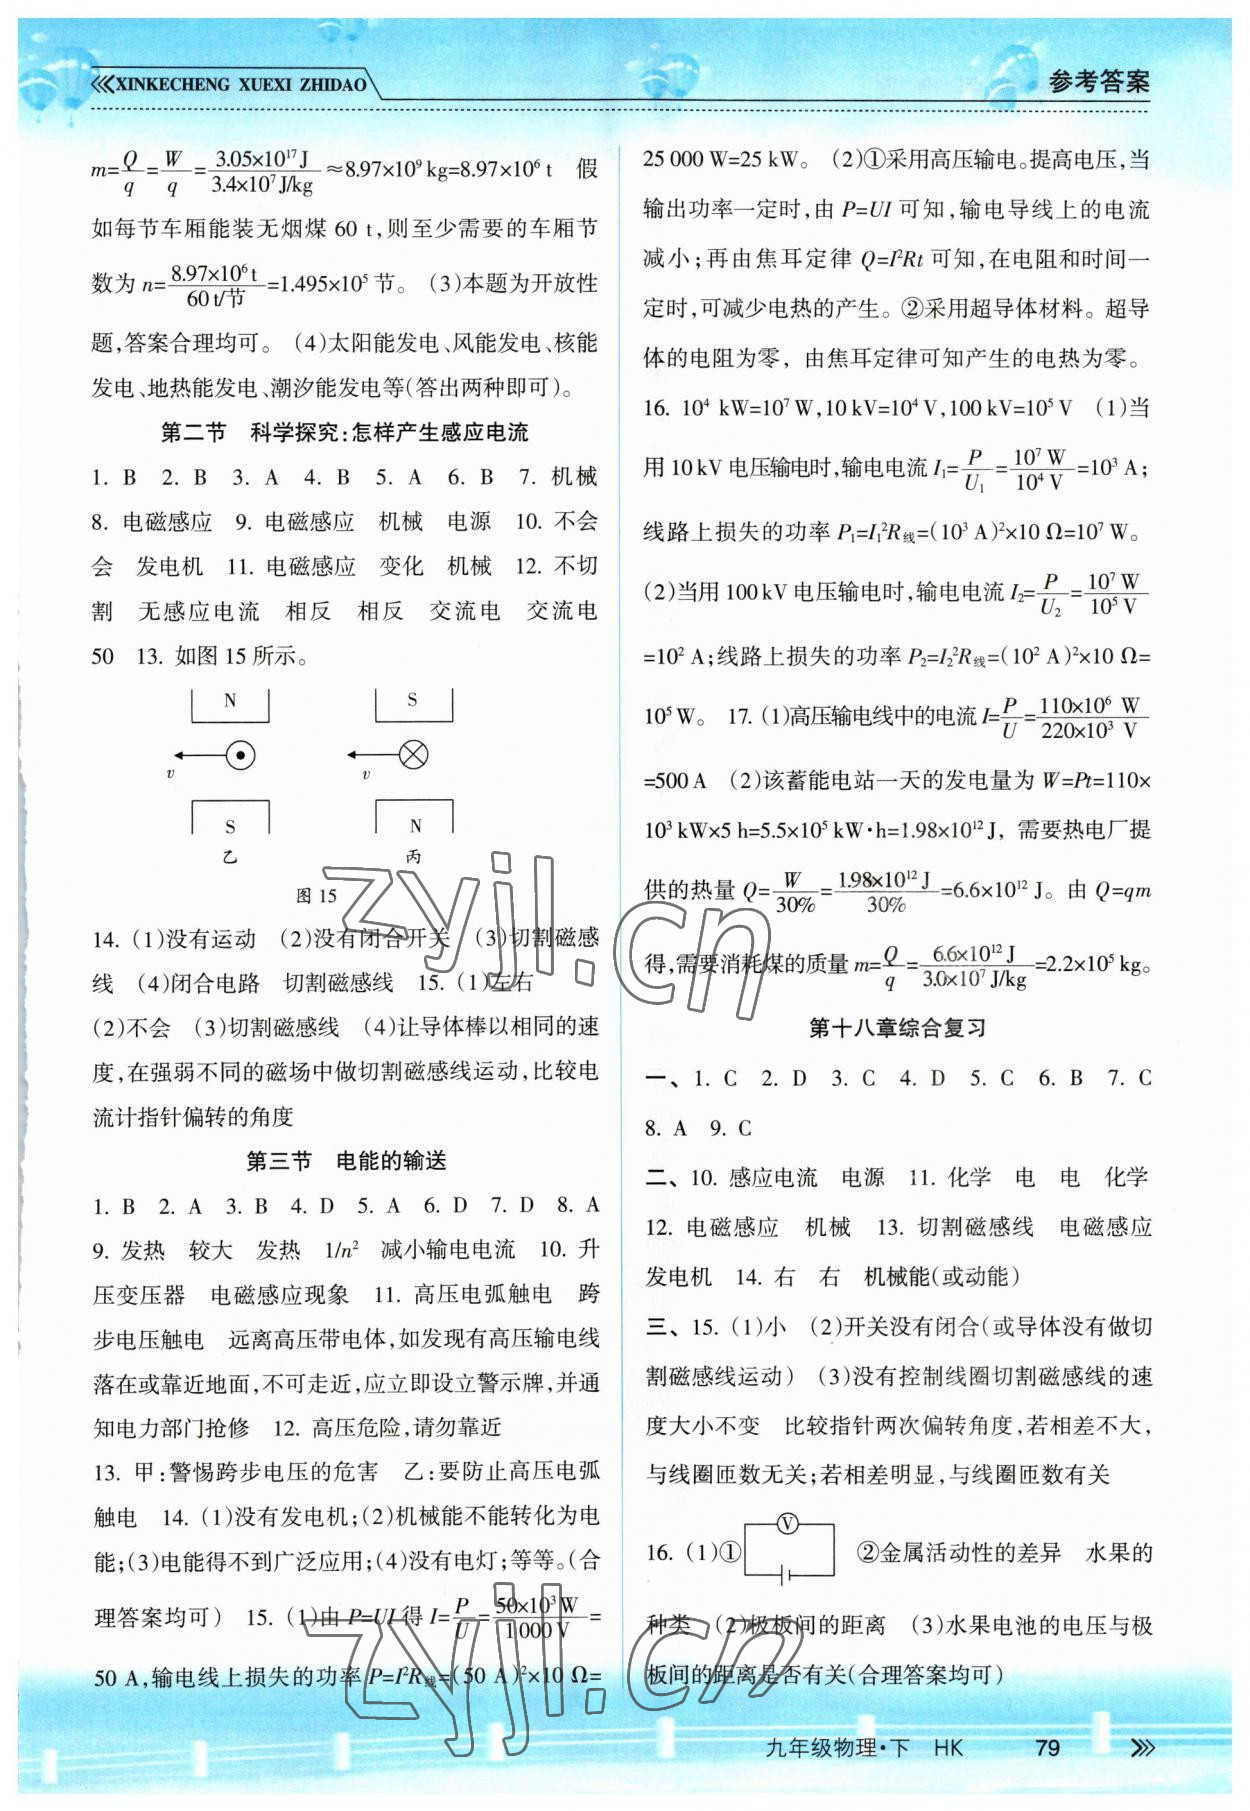 XINKECHENG XUEXI ZHIDAO
参考答案
m=Q/q=W/q=3.05×10¹⁷J/3.4×10⁷J/kg≈8.97×10⁹kg=8.97×10⁶t 假
如每节车厢能装无烟煤 60 t,则至少需要的车厢节
数为 n=8.97×10⁶t/60t/节=1.495×10⁵节。 (3)本题为开放性
题,答案合理均可。 (4)太阳能发电、风能发电、核能
发电、地热能发电、潮汐能发电等(答出两种即可)。
第二节 科学探究:怎样产生感应电流
1. B 2. B 3. A 4. B 5. A 6. B 7. 机械
8. 电磁感应 9. 电磁感应 机械 电源 10. 不会
会 发电机 11. 电磁感应 变化 机械 12. 不切
割 无感应电流 相反 相反 交流电 交流电
50 13. 如图 15 所示。
N S
v v
S N
乙 丙
图 15
14. (1)没有运动 (2)没有闭合开关 (3)切割磁感
线 (4)闭合电路 切割磁感线 15. (1)左右
(2)不会 (3)切割磁感线 (4)让导体棒以相同的速
度,在强弱不同的磁场中做切割磁感线运动,比较电
流计指针偏转的角度
第三节 电能的输送
1. B 2. A 3. B 4. D 5. A 6. D 7. D 8. A
9. 发热 较大 发热 1/n² 减小输电电流 10. 升
压变压器 电磁感应现象 11. 高压电弧触电 跨
步电压触电 远离高压带电体,如发现有高压输电线
落在或靠近地面,不可走近,应立即设立警示牌,并通
知电力部门抢修 12. 高压危险,请勿靠近
13. 甲:警惕跨步电压的危害 乙:要防止高压电弧
触电 14. (1)没有发电机;(2)机械能不能转化为电
能;(3)电能得不到广泛应用;(4)没有电灯;等等。(合
理答案均可) 15. (1)由 P=UI 得 I=P/U=50×10³W/1 000 V=
50 A,输电线上损失的功率 P=I²R线=(50 A)²×10 Ω=
25 000 W=25 kW。 (2)①采用高压输电。提高电压,当
输出功率一定时,由 P=UI 可知,输电导线上的电流
减小;再由焦耳定律 Q=I²Rt 可知,在电阻和时间一
定时,可减少电热的产生。②采用超导体材料。超导
体的电阻为零,由焦耳定律可知产生的电热为零。
16. 10⁴ kW=10⁷ W,10 kV=10⁴ V,100 kV=10⁵ V (1)当
用 10 kV 电压输电时,输电电流 I₁=P/U₁=10⁷ W/10⁴ V=10³ A;
线路上损失的功率 P₁=I₁²R线=(10³ A)²×10 Ω=10⁷ W。
(2)当用 100 kV 电压输电时,输电电流 I₂=P/U₂=10⁷ W/10⁵ V
=10² A;线路上损失的功率 P₂=I₂²R线=(10² A)²×10 Ω=
10⁵ W。 17. (1)高压输电线中的电流 I=P/U=110×10⁶ W/220×10³ V
=500 A (2)该蓄能电站一天的发电量为 W=Pt=110×
10³ kW×5 h=5.5×10⁵ kW·h=1.98×10¹² J, 需要热电厂提
供的热量 Q=W/30%=1.98×10¹² J/30%=6.6×10¹² J。由 Q=qm
得,需要消耗煤的质量 m=Q/q=6.6×10¹² J/3.0×10⁷ J/kg=2.2×10⁵ kg。
第十八章综合复习
一、1. C 2. D 3. C 4. D 5. C 6. B 7. C
8. A 9. C
二、10. 感应电流 电源 11. 化学 电 电 化学
12. 电磁感应 机械 13. 切割磁感线 电磁感应
发电机 14. 右 右 机械能(或动能)
三、15. (1)小 (2)开关没有闭合(或导体没有做切
割磁感线运动) (3)没有控制线圈切割磁感线的速
度大小不变 比较指针两次偏转角度,若相差不大,
与线圈匝数无关;若相差明显,与线圈匝数有关
V
16. (1)① ②金属活动性的差异 水果的
种类 (2)极板间的距离 (3)水果电池的电压与极
板间的距离是否有关(合理答案均可)
九年级物理·下 HK 79
zyjl.cn
zyjl.cn